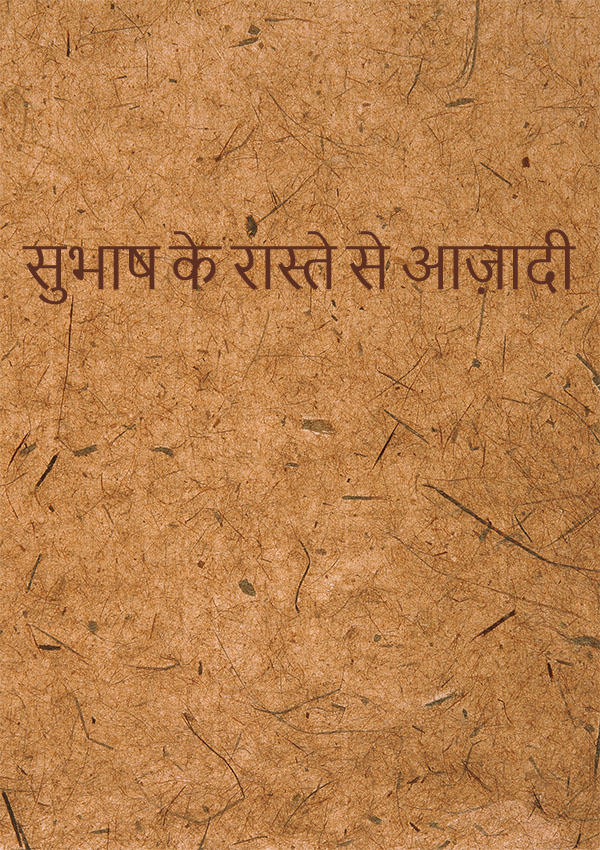 सुभाष के रास्ते से आज़ादी